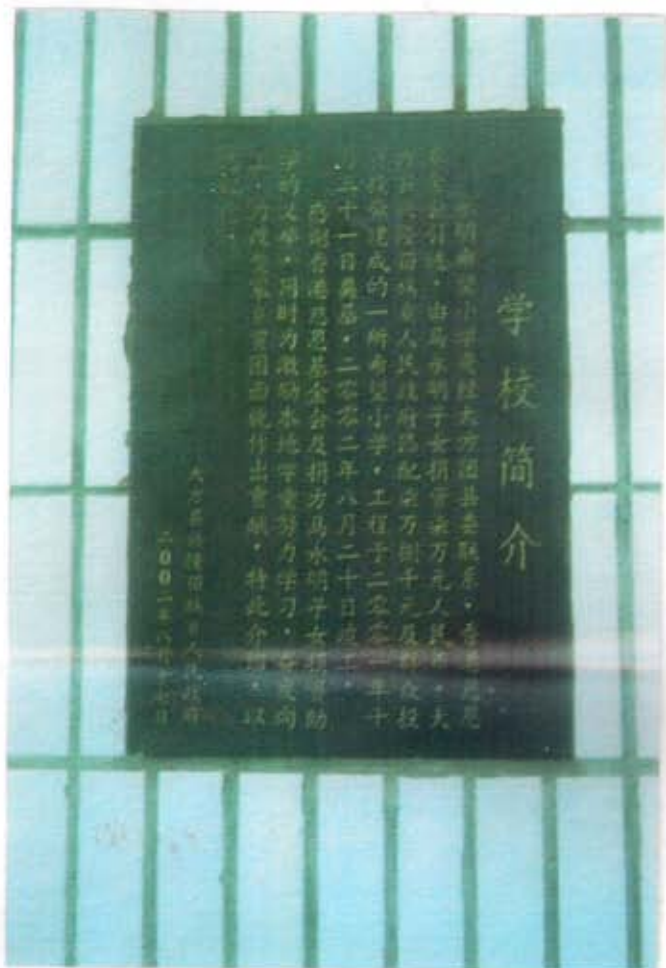 学校简介
永明希望小学是经大方团县委联系，香港思恩
基金会引线，由马永明子女捐资柒万元人民币，大
方县 城乡人民政府匹配柒万捌千元及群众投
工投劳建成的一所希望小学，工程于二零零一年十
月三十一日奠基，二零零二年八月二十日竣工。
感谢香港思恩基金会及捐方马永明子女捐资助
学的义举，同时为激励本地学童努力学习，奋发向
上，为改变家乡贫困面貌作出贡献，特此介绍，以
大方县 城乡人民政府
二00二年八月 日